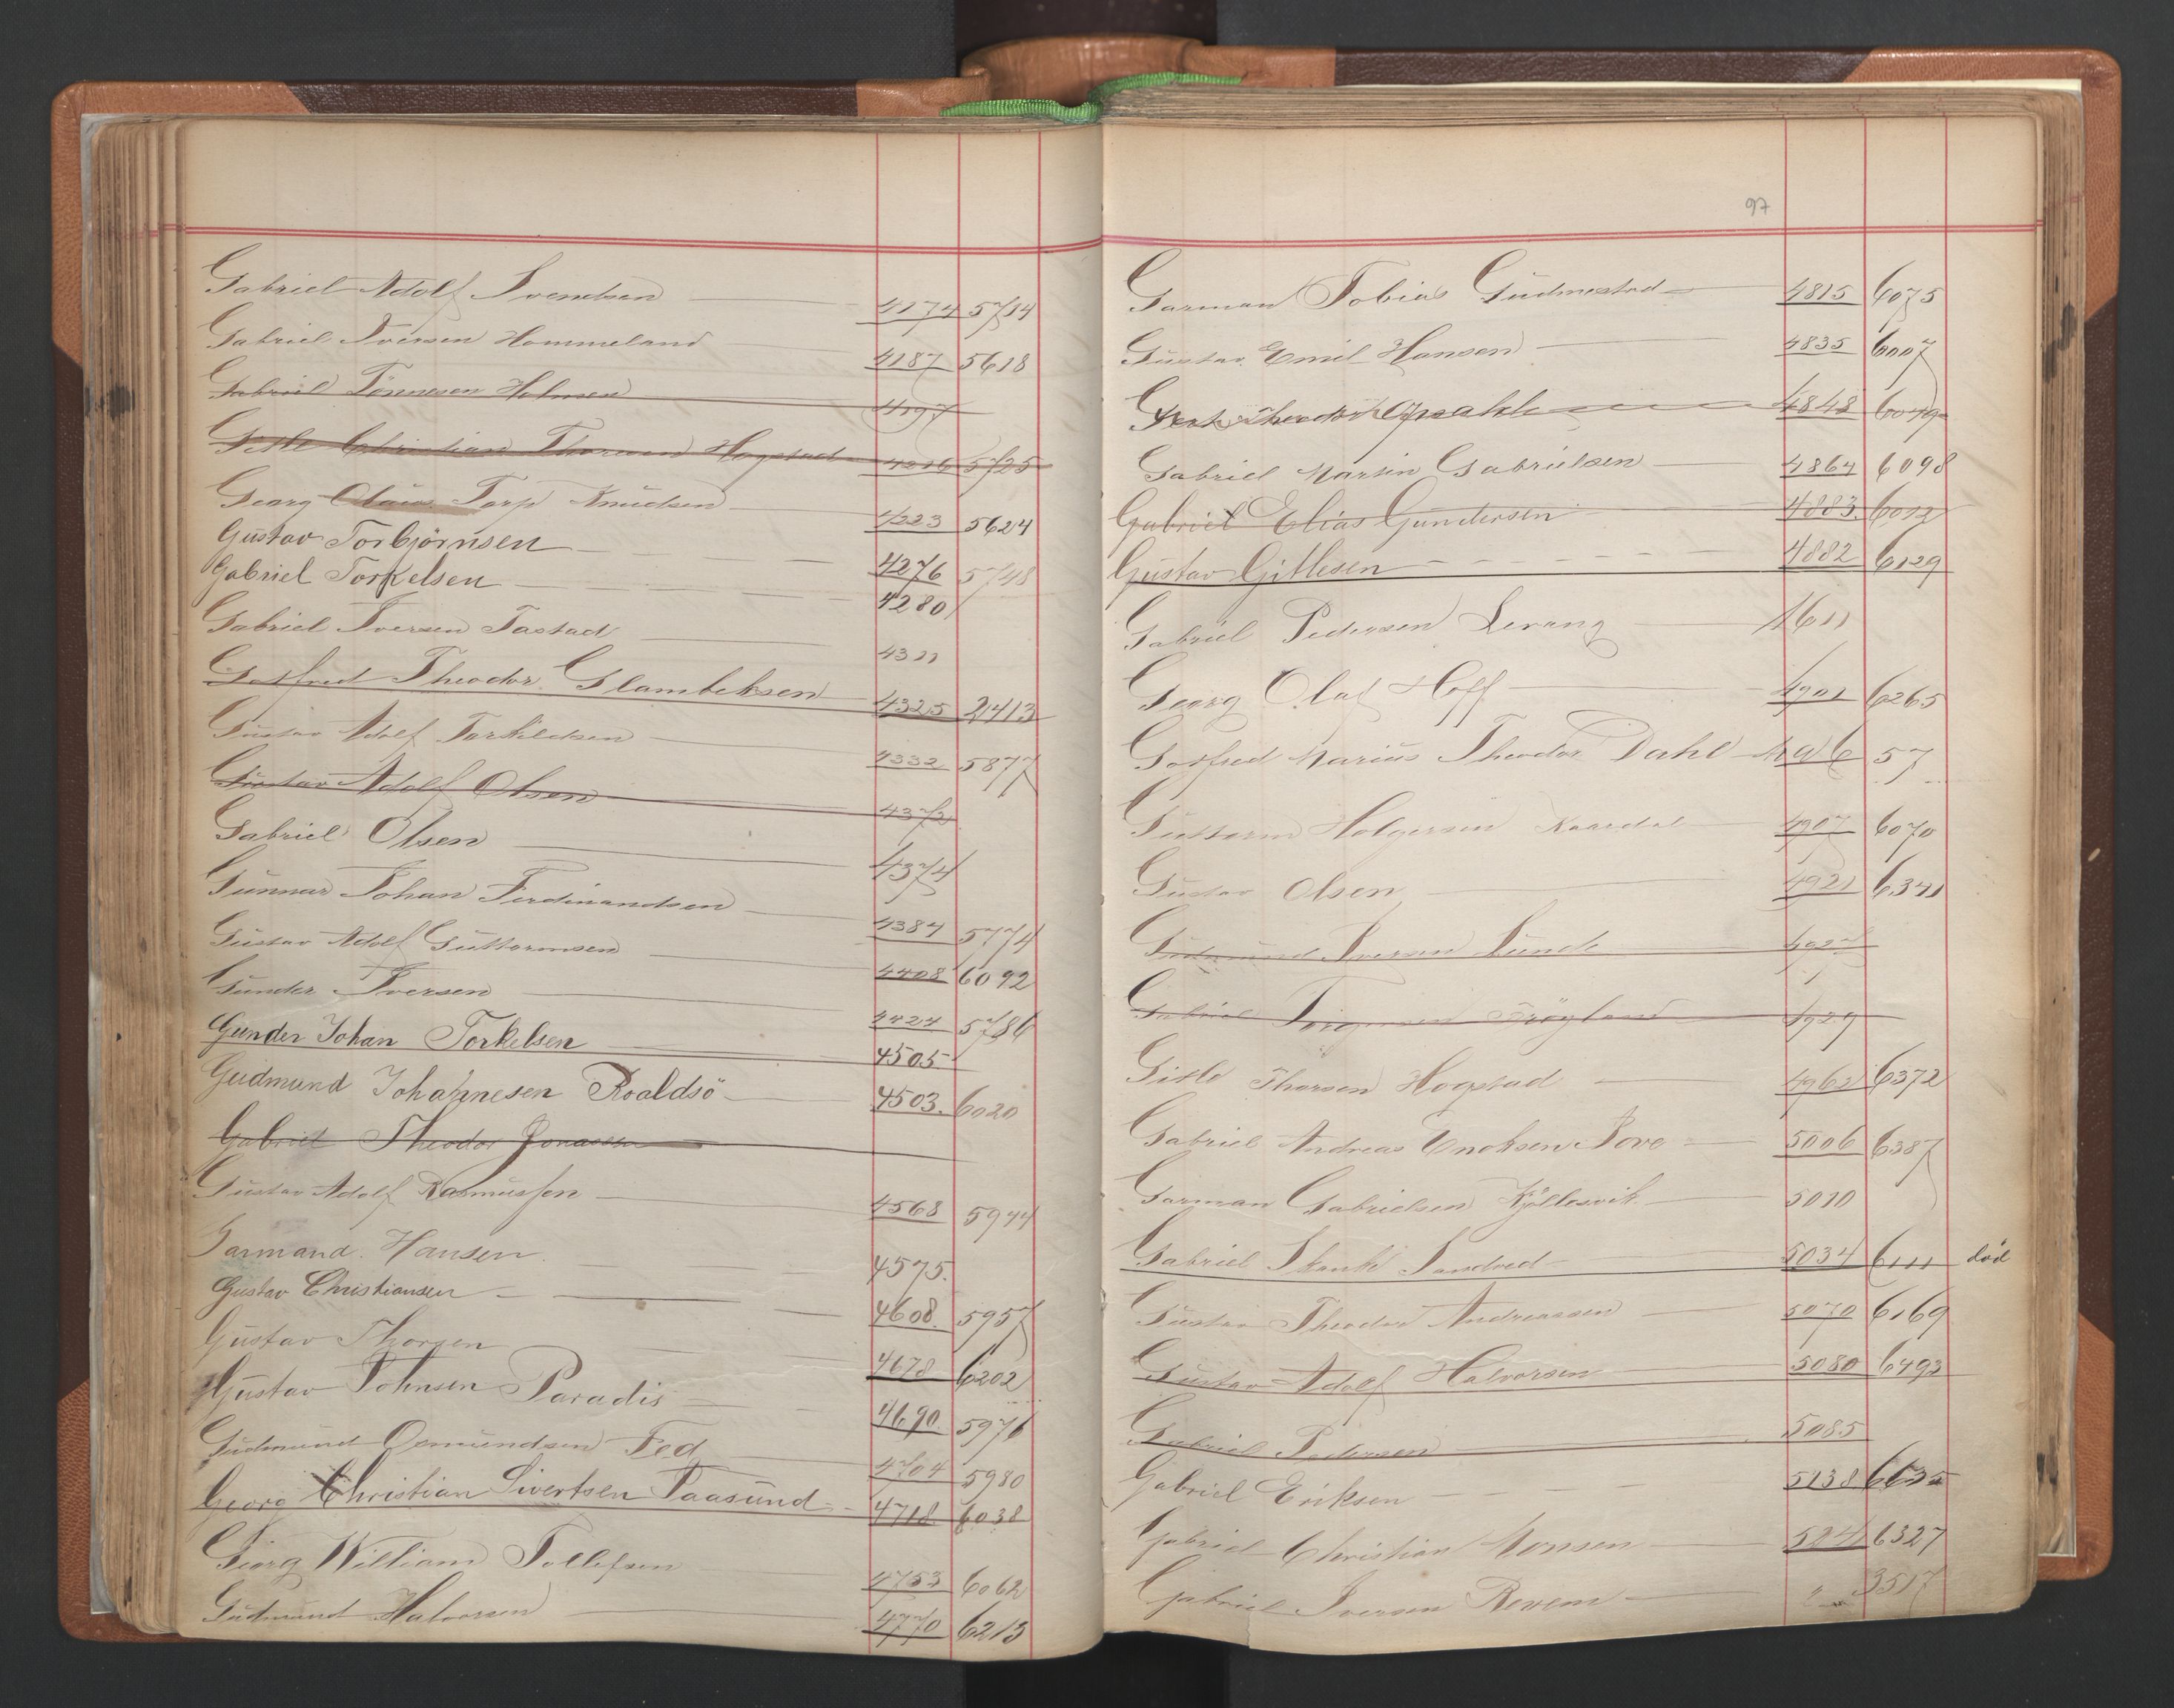 Gabriel Adolf Svendsen 4174 5714
Gabriel Iversen Hommeland 4187 5618
Gabriel Tönnesen Holmsen 4197
Gitle Christian Thorsen Hogstad 4216 5725
Georg Olaus Torp Knudsen 4223 5624
Gustav Torbjörnsen 4276 5748
Gabriel Torkelsen 4280
Gabriel Iversen Tastad 4311
Gotfred Theodor Glambeksen 4325 2413
Gustav Adolf Torkildsen 4332 5877
Gustav Adolf Olsen 4372
Gabriel Olsen 4374
Gunnar Johan Ferdinandsen 4384 5774
Gustav Adolf Guttormsen 4408 6092
Gunder Iversen 4424 5786
Gunder Johan Torkelsen 4505
Gudmund Johannesen Roaldsö 4503. 6020
Gabriel Theodor Jonassen
Gustav Adolf Rasmussen 4568 5944
Garmand. Hansen 4575.
Gustav Christiansen 4608. 5957
Gustav Thorsen 4678 6202
Gustav Johnsen Paradis 4690 5976
Gudmund Osmundsen Fed 4704 5980
Georg Christian Sivertsen Paasund 4718 6038
Georg William Tollefsen 4753 6062
Gudmund Halvorsen 4770 6213
97
Garman Tobias Gudmestad 4815 6075
Gustav Emil Hansen 4835 6007
Theodor Opsahl 4848 6049
Gabriel Martin Gabrielsen 4864 6098
Gabriel Elias Gundersen 4883. 6012
Gustav Gitlesen 4882 6129
Gabriel Pedersen Levang 1611
Georg Olaf Hoff 4901 6265
Gotfred Marius Theodor Dahl 57
Guttorm Holgersen 4907 6070
Gustav Olsen 4921 6341
Gudmund Iversen Lunde
Gabriel Fröyland 4929
Gitle Thorsen Hogstad 4962 6372
Gabriel Andreas Enoksen 5006 6387
Garman Gabrielsen Kjöllesvik 5010
Gabriel Skanke Sandved 5034 6111 död
Gustav Theodor Andreassen 5070 6169
Gustav Adolf Halvorsen 5080 6493
Gabriel Pedersen 5085
Gabriel Eriksen 5138
Gabriel Christian Monsen 6327
Gabriel Iversen Revem " 3517